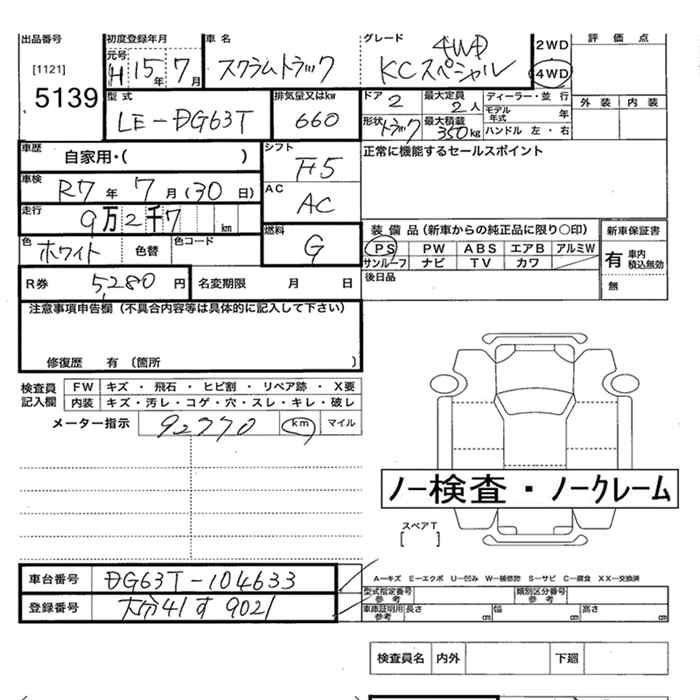 出品番号 初度登録年月 車名 グレード 評価点
[1121] 元号 H 15年 7月 スクラムトラック 4WD KCスペシャル 2WD 4WD
5139 型式 排気量又はkw ドア 2 最大定員 2人 ディーラー・並行 外装 内装
LE-DG63T 660 形状 トラック 最大積載 350kg モデル年式 年
ハンドル 左・右
車歴 自家用・( ) シフト F5 正常に機能するセールスポイント
車検 R7年 7月(30日) AC AC
走行 9万2千7 km 燃料 G 装備品(新車からの純正品に限り○印) 新車保証書
色 ホワイト 色替 色コード PS PW ABS エアB アルミW 有 車内積込無効
サンルーフ ナビ TV カワ
R券 5,280円 名変期限 月 日 後日品 無
注意事項申告欄(不具合内容等は具体的に記入して下さい)
修復歴 有(箇所 )
検査員記入欄 FW キズ・飛石・ヒビ割・リペア跡・X要
内装 キズ・汚レ・コゲ・穴・スレ・キレ・破レ
メーター指示 92770 km マイル
ノー検査・ノークレーム
スペアT
[ ]
車台番号 DG63T-104633
A-キズ E-エクボ U-凹み W-補修跡 S-サビ C-腐食 XX-交換済
登録番号 大分41す9021
型式指定番号参考 類別区分番号参考
車庫証明用参考 長さ cm 幅 cm 高さ cm
検査員名 内外 下廻